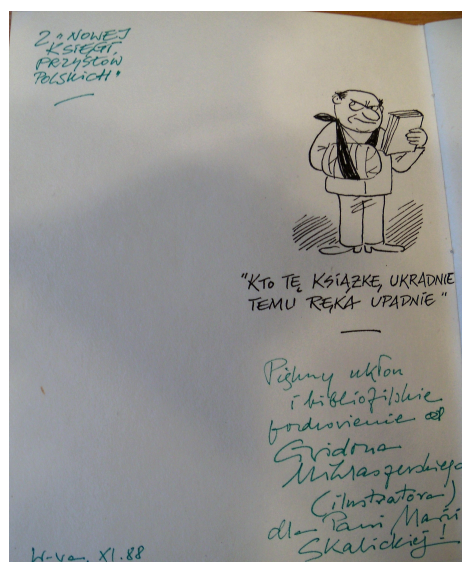 Z "NOWEJ
KSIĘGI
PRZYSŁÓW
POLSKICH"
"KTO TĘ KSIĄŻKĘ UKRADNIE
TEMU RĘKA UPADNIE"
Piękny ukłon
i bibliofilskie
pozdrowienie od
Gwidona
Miklaszewskiego
(ilustratora)
dla Pani Marii
SKALICKIEJ!
W-wa, XI.88